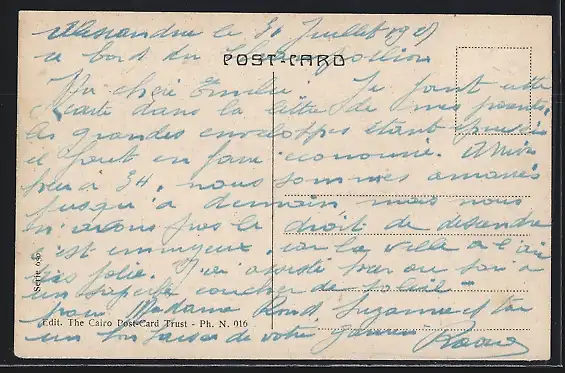 Alexandrie le 31 Juillet 19
à bord du Champollion
POST-CARD
Ma chère Emilie Je joint cette
carte dans la lettre de mes parents,
les grandes enveloppes étant
il faut en faire économie. Arrivés
hier à 3 H. nous sommes amarrés
jusqu'à demain mais nous
n'avons pas le droit de descendre
c'est ennuyeux car la ville a l'air
très jolie. J'ai assisté hier au soir à
un superbe coucher de soleil
pour Madame Rond, Suzanne et toi
un bon baiser de votre
Serie 695
Edit. The Cairo Post-Card Trust - Ph. N. 016